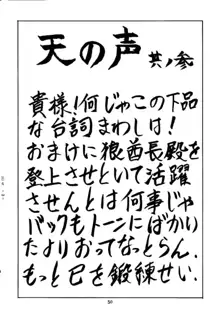 天の声 其ノ参
貴様!何じゃこの下品
な台詞まわしは!
おまけに狼酋長殿を
登上させといて活躍
させんとは何事じゃ
バックもトーンにばかり
たよりおってなっとらん.
もっと己を鍛練せい.
30